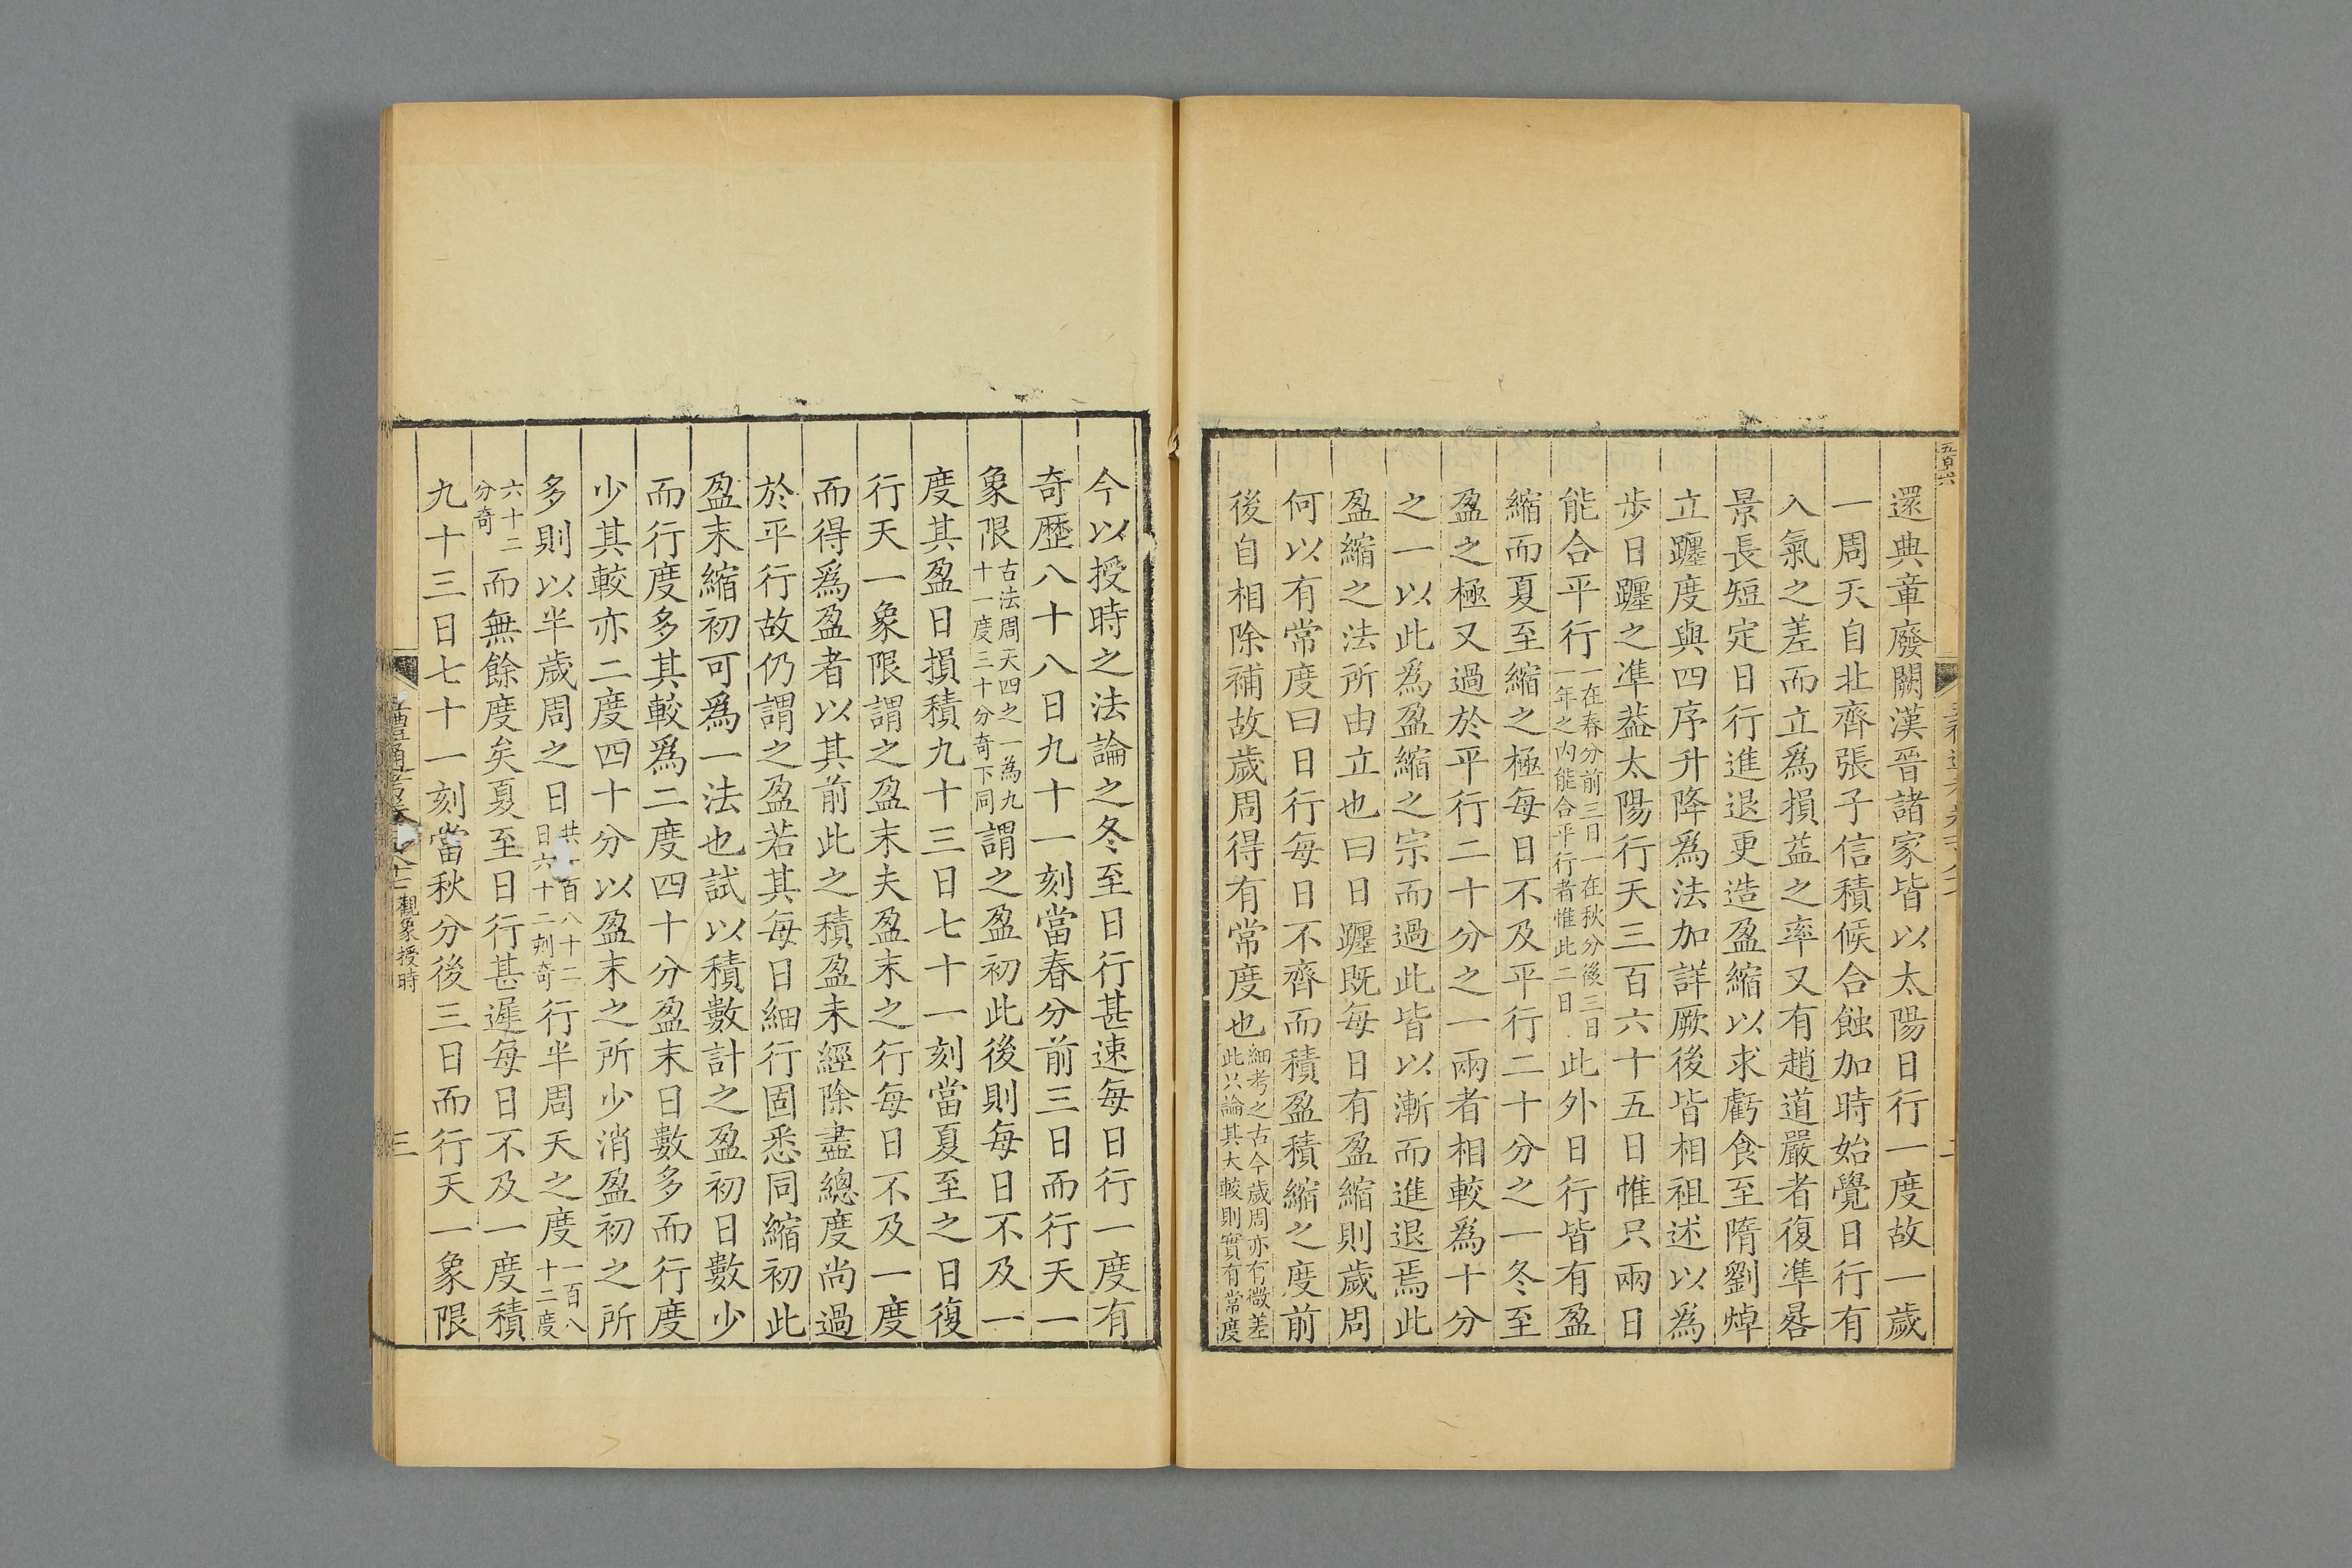 還典章廢闕漢晉諸家皆以太陽日行一度故一歲
一周天自北齊張子信積候合蝕加時始覺日行有
入氣之差而立爲損益之率又有趙道嚴者復準晷
景長短定日行進退更造盈縮以求虧食至隋劉焯
立躔度與四序升降爲法加詳厥後皆相祖述以爲
步日躔之準葢太陽行天三百六十五日惟只兩日
能合平行一在春分前三日一在秋分後三日一年之内能合平行者惟此二日此外日行皆有盈
縮而夏至縮之極每日不及平行二十分之一冬至
盈之極又過於平行二十分之一兩者相較爲十分
之一以此爲盈縮之宗而過此皆以漸而進退焉此
盈縮之法所由立也曰日躔既每日有盈縮則歲周
何以有常度曰日行每日不齊而積盈積縮之度前
後自相除補故歲周得有常度也細考之古今歲周亦有微差此只論其大較則實有常度
今以授時之法論之冬至日行甚速每日行一度有
奇歷八十八日九十一刻當春分前三日而行天一
象限古法周天四之一為九十一度三十分奇下同謂之盈初此後則每日不及一
度其盈日損積九十三日七十一刻當夏至之日復
行天一象限謂之盈末夫盈末之行每日不及一度
而得爲盈者以其前此之積盈未經除盡總度尚過
於平行故仍謂之盈若其每日細行固悉同縮初此
盈末縮初可爲一法也試以積數計之盈初日數少
而行度多其較爲二度四十分盈末日數多而行度
少其較亦二度四十分以盈末之所少消盈初之所
多則以半歲周之日共一百八十二日六十二刻奇行半周天之度一百八十二度
六十二分奇而無餘度矣夏至日行甚遲每日不及一度積
九十三日七十一刻當秋分後三日而行天一象限
觀象授時
三